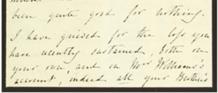 been quite good for nothing.
I have grieved for the loss you
have recently sustained, both on
your own, and on Mrs William's
account, indeed all your Brother's